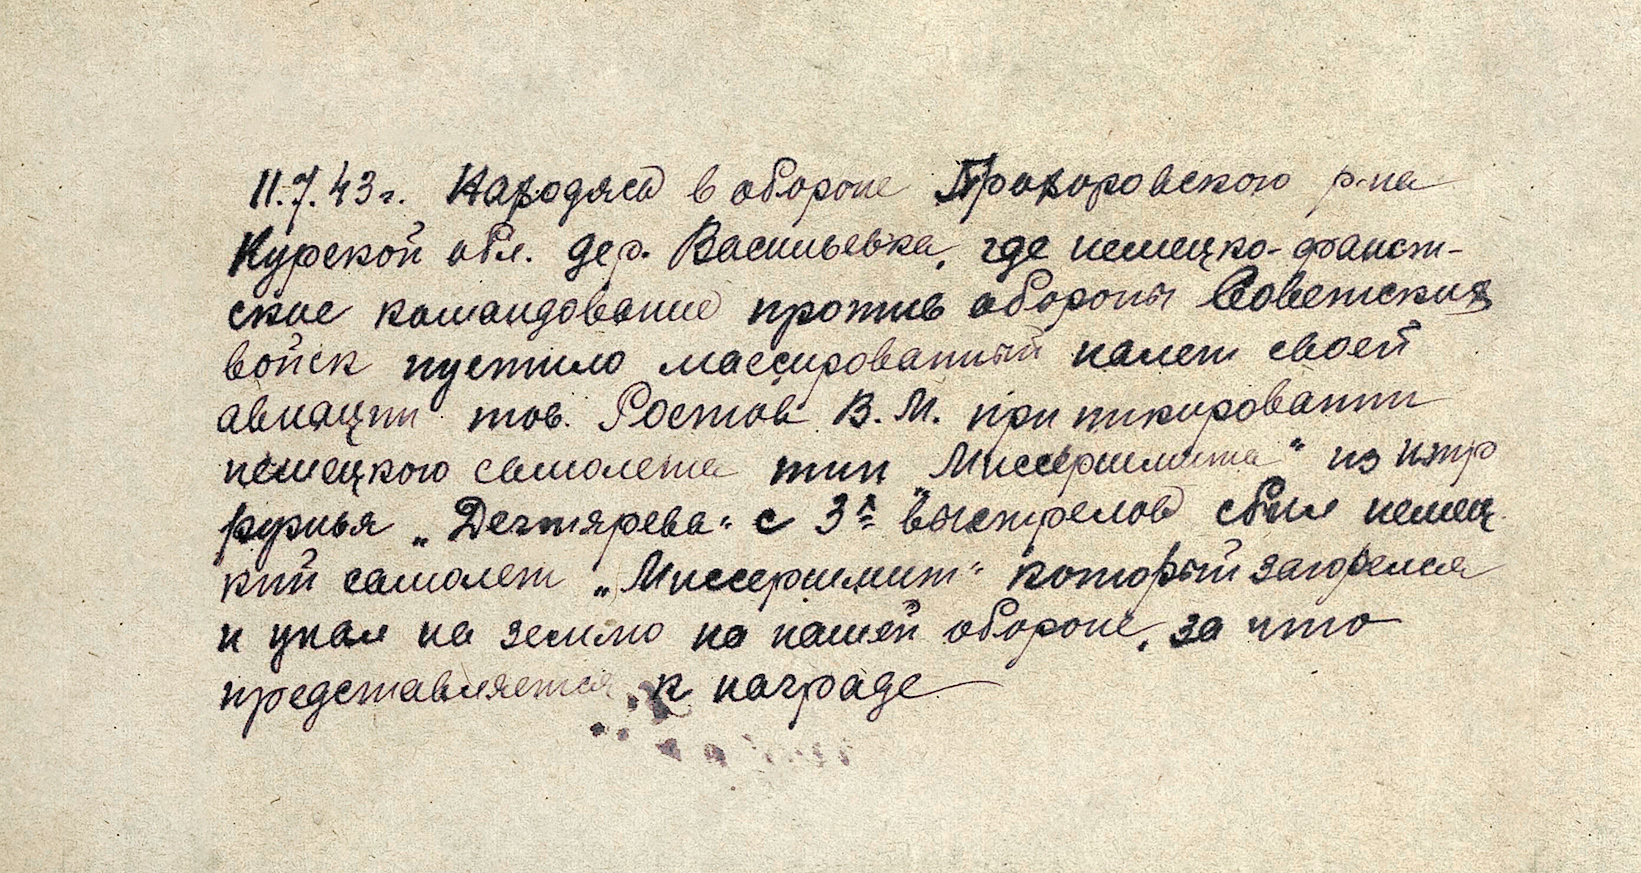 11.7.43 г. Находясь в обороне Прохоровского р-на
Курской обл. дер. Васильевка, где немецко-фашист-
ское командование против обороны Советских
войск пустило массированный налет своей
авиации тов. Ростов В.М. при пикировании
немецкого самолета тип „Миссершмита“ из птр
ружья „Дегтярева“ с 3х выстрелов сбил немец
кий самолет „Миссершмит“ который загорелся
и упал на землю на нашей обороне, за что
представляется к награде